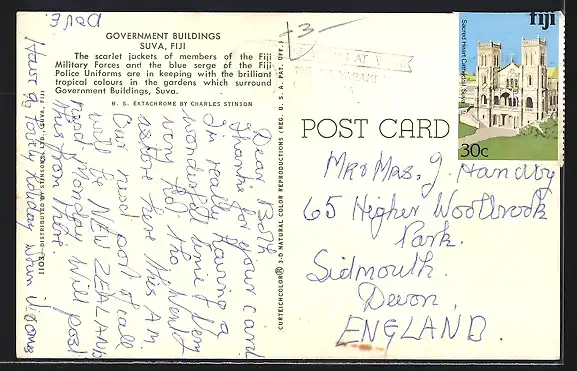 GOVERNMENT BUILDINGS
SUVA, FIJI
The scarlet jackets of members of the Fiji
Military Forces and the blue serge of the Fiji
Police Uniforms are in keeping with the brilliant
tropical colours in the gardens which surround
Government Buildings, Suva.
H. S. EKTACHROME BY CHARLES STINSON
Dear Both
Thanks for your card
I'm really having a
wonderful time. Very
very hot the
ashore here this A.M.
Our next port of call
will be NEW ZEALAND
next Monday will post
this from there.
Have a lovely holiday
love
CURTEICHCOLOR® 3-D NATURAL COLOR REPRODUCTIONS (REG. U. S. A. PAT. OFF.)
1103—DISTRIBUTED BY STINSONS LTD., SUVA, FIJI
-3-
fiji
Sacred Heart Cathedral Suva
30c
POST CARD
Mr & Mrs. J. Handby
65 Higher Woolbrook
Park.
Sidmouth.
Devon.
ENGLAND.